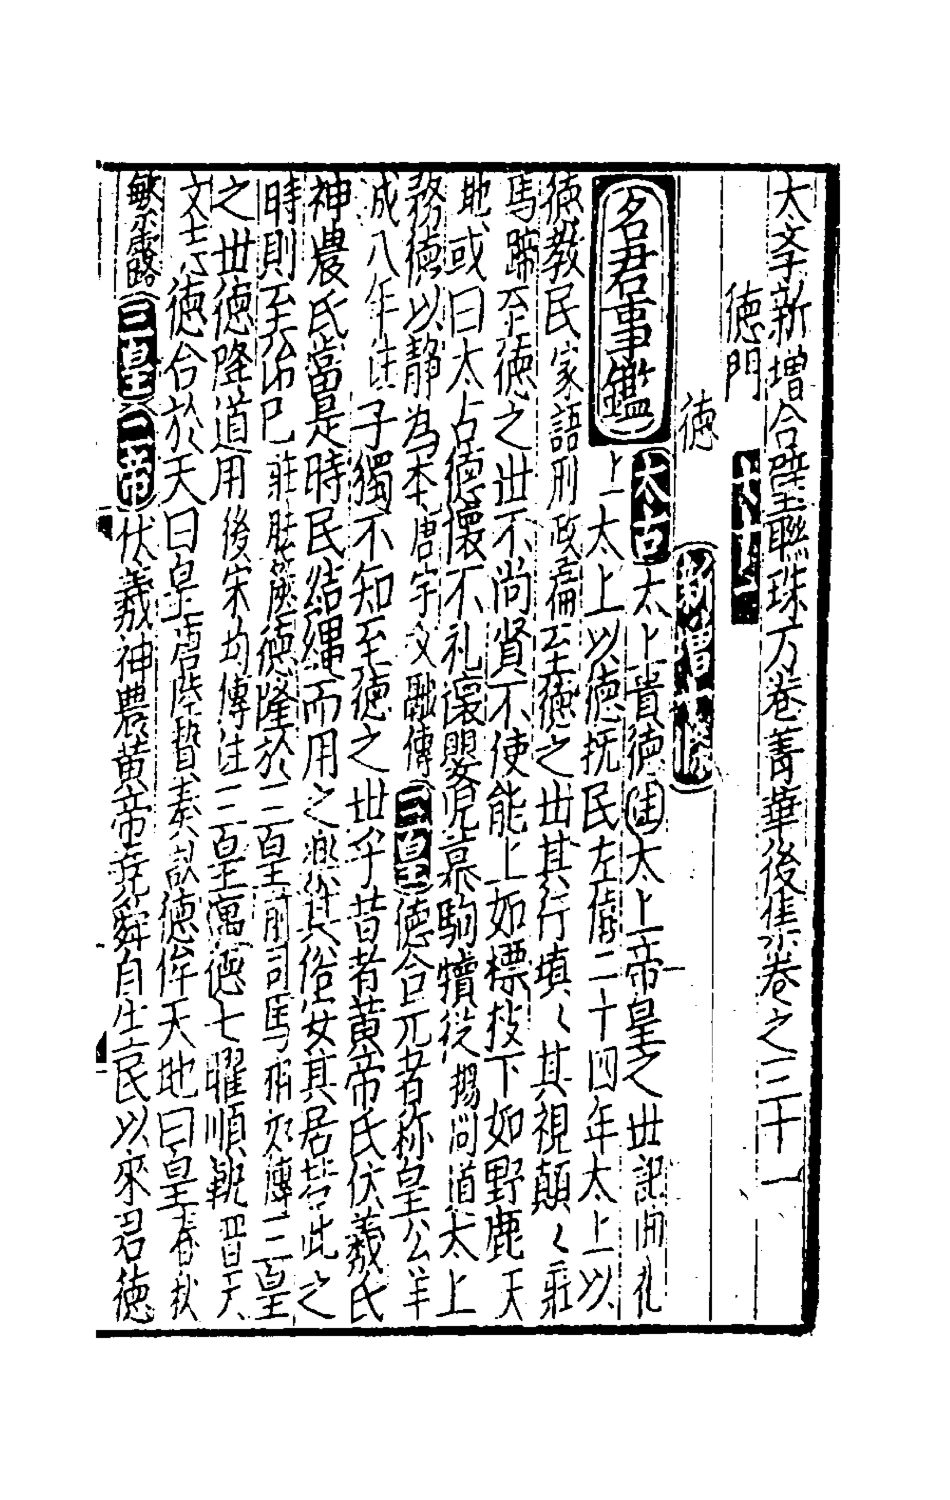 太学新增合璧聯珠万卷菁華後集卷之三十一
德門
德 新增
名君事鑑 太古 太上貴德太上帝皇之世記曲礼
上太上以德抚民左僖二十四年太上以
德教民家語刑政篇至德之世其行填〻其視顛〻莊
馬蹄至德之世不尚賢不使能上如標枝下如野鹿天
地或曰太古德懷不礼懷嬰児慕駒犢從揚問道太上
務德以静為本唐宇文融傳 三皇 德合元者称皇公羊
成八年注子獨不知至德之世乎昔者黄帝氏伏羲氏
神農氏當是時民结繩而用之樂其俗安其居若此之
時則至治已莊胠篋德隆於三皇前司馬相如傳三皇
之世德降道用後宋均傳注三皇寓德七曜順軌晋天
文志德合於天曰皇唐陸贄奏議德侔天地曰皇春秋
繁露 三皇 二帝 伏羲神農黄帝堯舜自生民以來君德